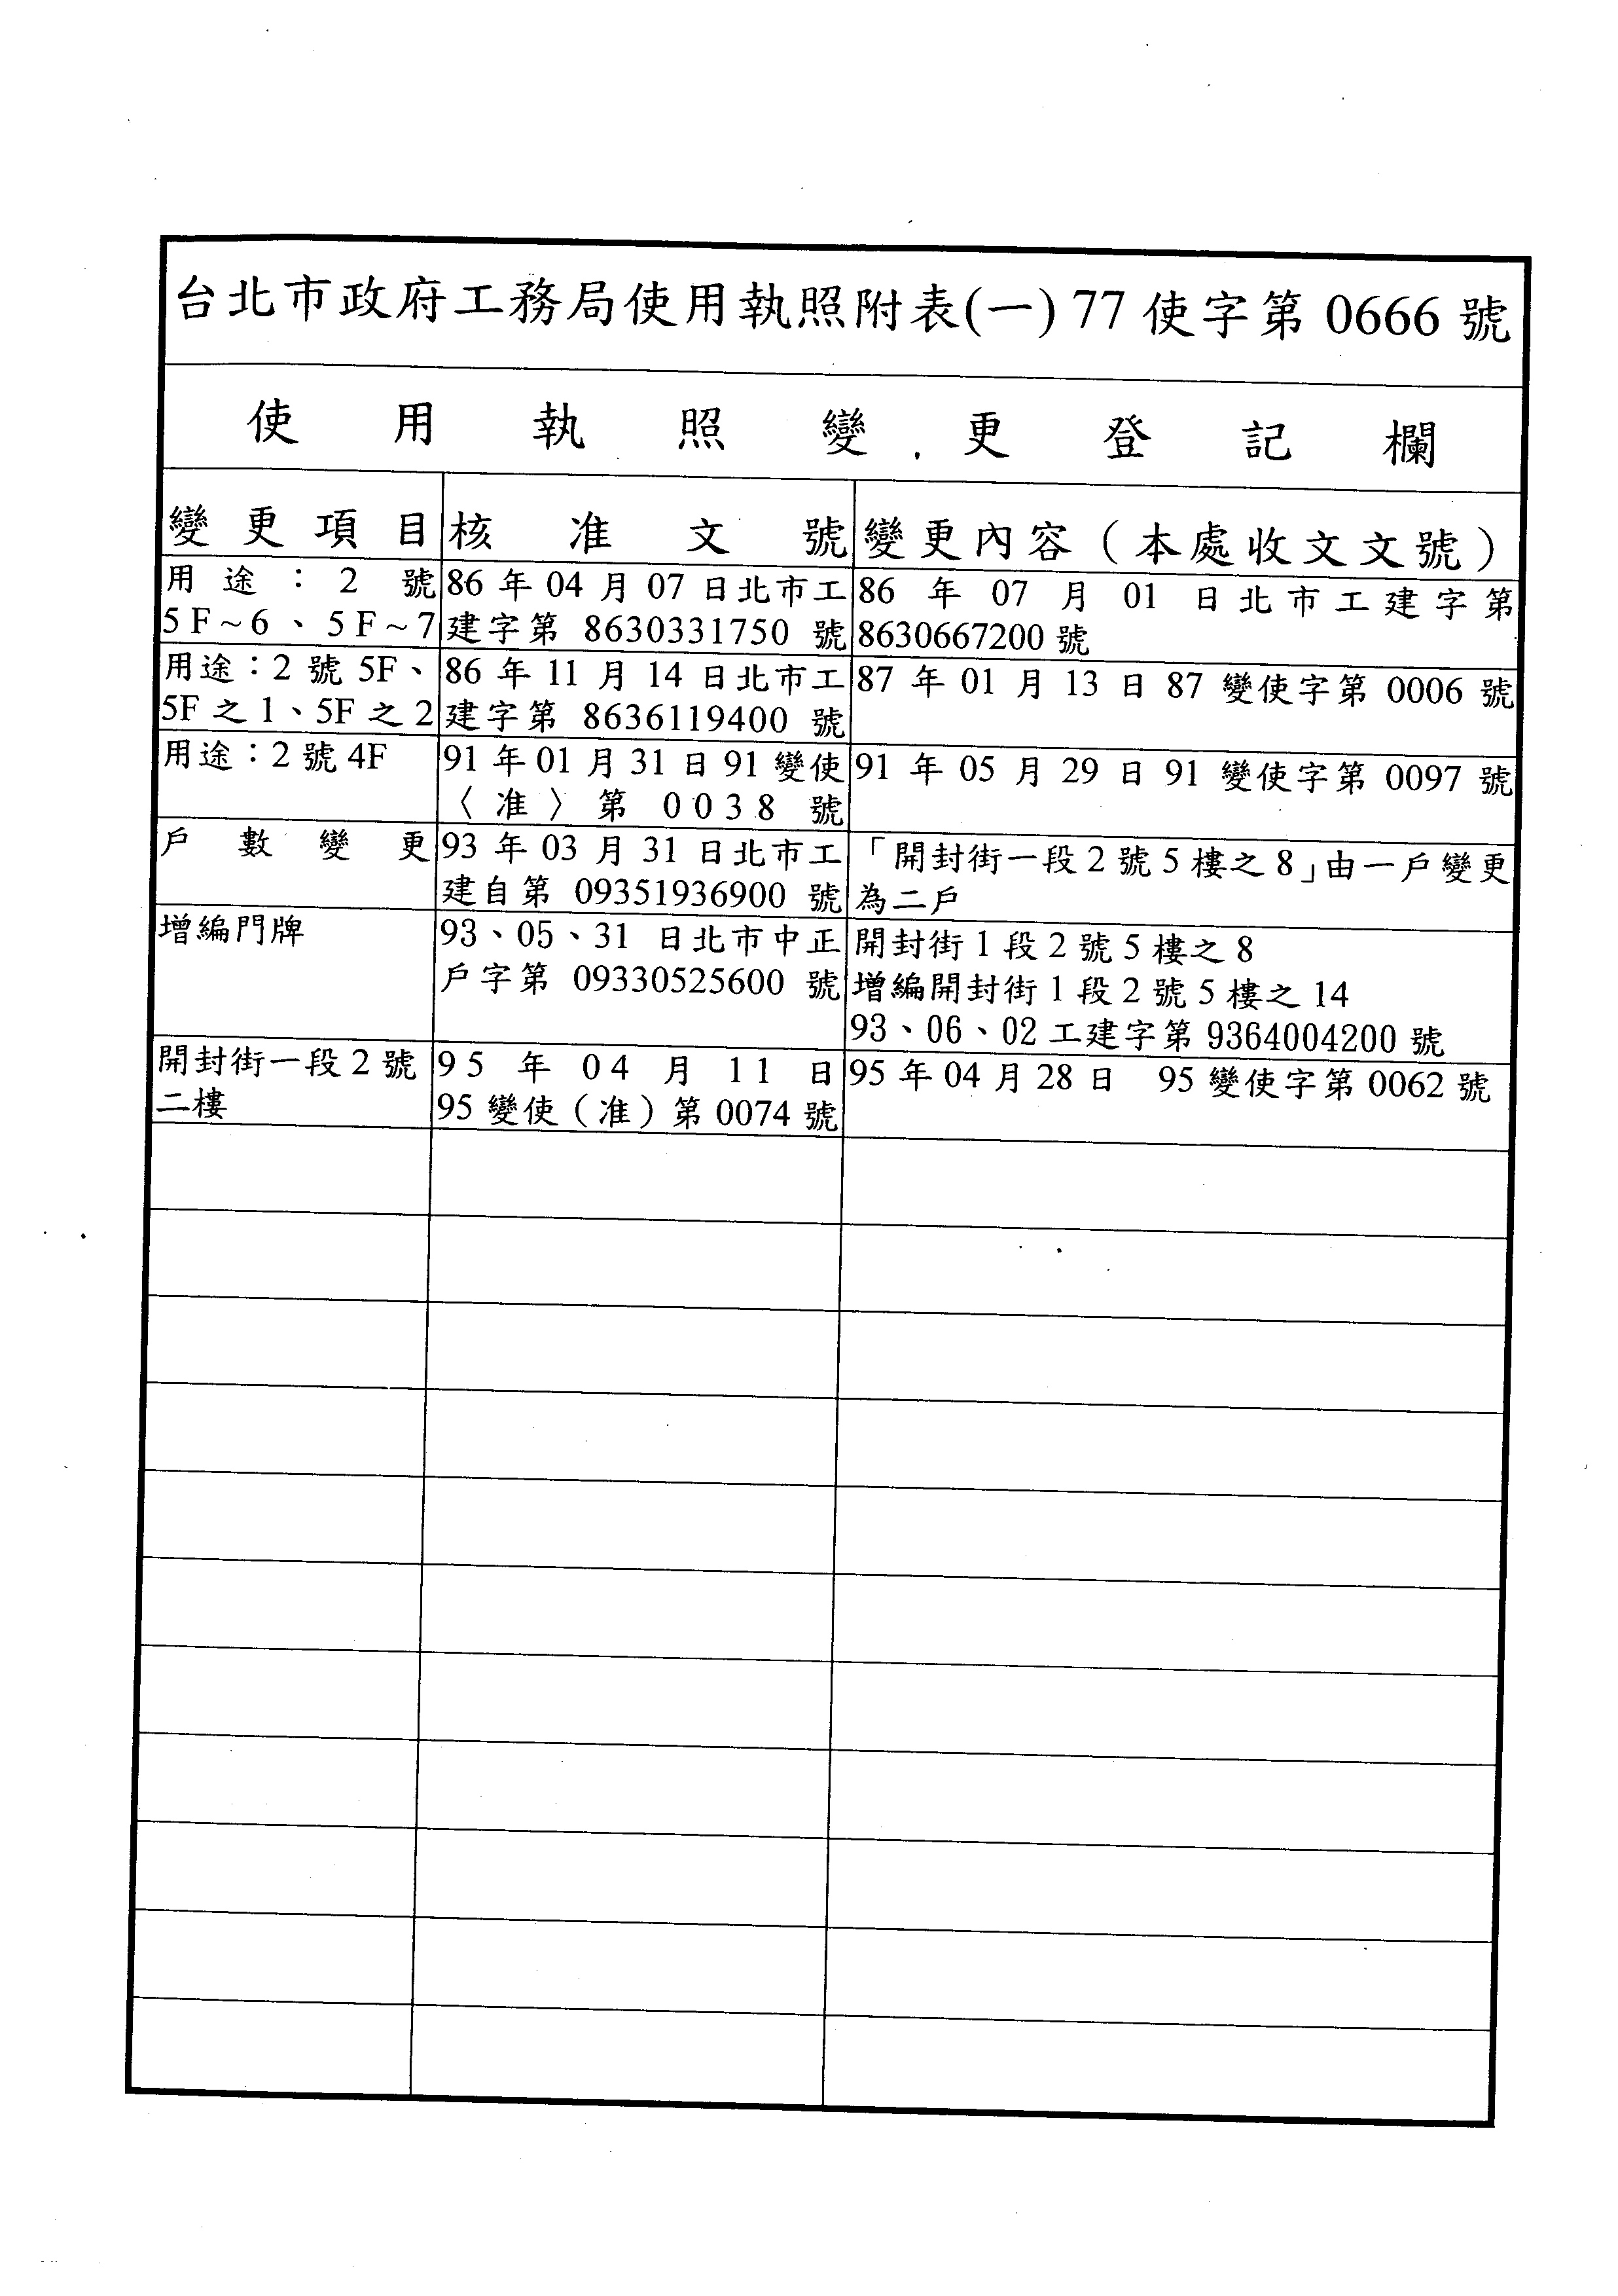 台北市政府工務局使用執照附表(一) 77 使字第 0666 號
使用執照變更登記欄
變更項目 核准文號 變更內容（本處收文文號）
用途：2號
5F~6、5F~7
86年04月07日北市工
建字第 8630331750 號
86年07月01日北市工建字第
8630667200號
用途：2號5F、
5F之1、5F之2
86年11月14日北市工
建字第 8636119400 號
87年01月13日87變使字第0006號
用途：2號4F
91年01月31日91變使
〈准〉第0038號
91年05月29日91變使字第0097號
戶數變更
93年03月31日北市工
建自第 09351936900 號
「開封街一段2號5樓之8」由一戶變更
為二戶
增編門牌
93、05、31日北市中正
戶字第 09330525600 號
開封街1段2號5樓之8
增編開封街1段2號5樓之14
93、06、02工建字第9364004200號
開封街一段2號
二樓
95年04月11日
95變使（准）第0074號
95年04月28日 95變使字第0062號